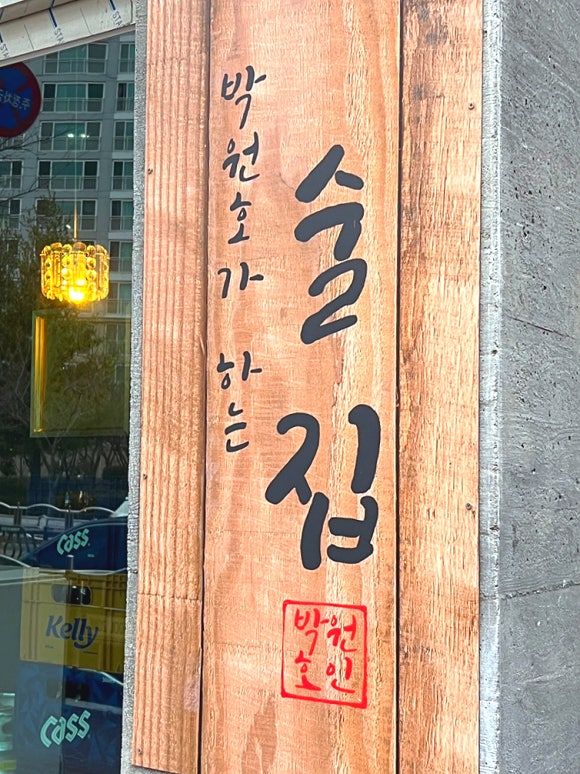 박원호가 하는
술집
박원
호인
Cass
Kelly
Cass